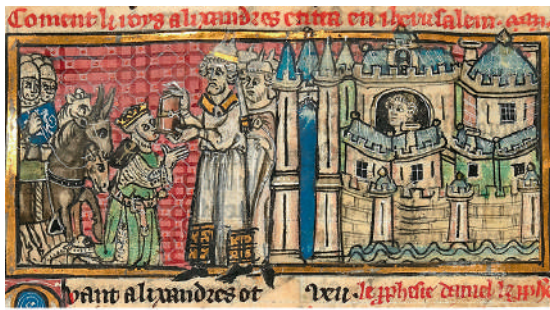 Coment li roys alixandres entra en iherusalem.
Quant alixandres ot veu le pphesie daniel le